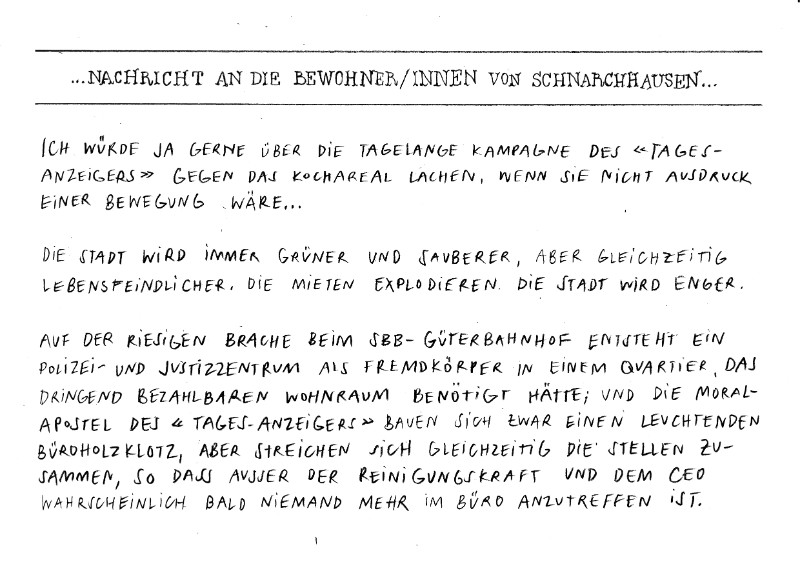 ...NACHRICHT AN DIE BEWOHNER/INNEN VON SCHNARCHHAUSEN...
ICH WÜRDE JA GERNE ÜBER DIE TAGELANGE KAMPAGNE DES «TAGES-
ANZEIGERS» GEGEN DAS KOCHAREAL LACHEN, WENN SIE NICHT AUSDRUCK
EINER BEWEGUNG WÄRE...
DIE STADT WIRD IMMER GRÜNER UND SAUBERER, ABER GLEICHZEITIG
LEBENSFEINDLICHER. DIE MIETEN EXPLODIEREN. DIE STADT WIRD ENGER.
AUF DER RIESIGEN BRACHE BEIM SBB-GÜTERBAHNHOF ENTSTEHT EIN
POLIZEI- UND JUSTIZZENTRUM ALS FREMDKÖRPER IN EINEM QUARTIER, DAS
DRINGEND BEZAHLBAREN WOHNRAUM BENÖTIGT HÄTTE; UND DIE MORAL-
APOSTEL DES «TAGES-ANZEIGERS» BAUEN SICH ZWAR EINEN LEUCHTENDEN
BÜROHOLZKLOTZ, ABER STREICHEN SICH GLEICHZEITIG DIE STELLEN ZU-
SAMMEN, SO DASS AUSSER DER REINIGUNGSKRAFT UND DEM CEO
WAHRSCHEINLICH BALD NIEMAND MEHR IM BÜRO ANZUTREFFEN IST.